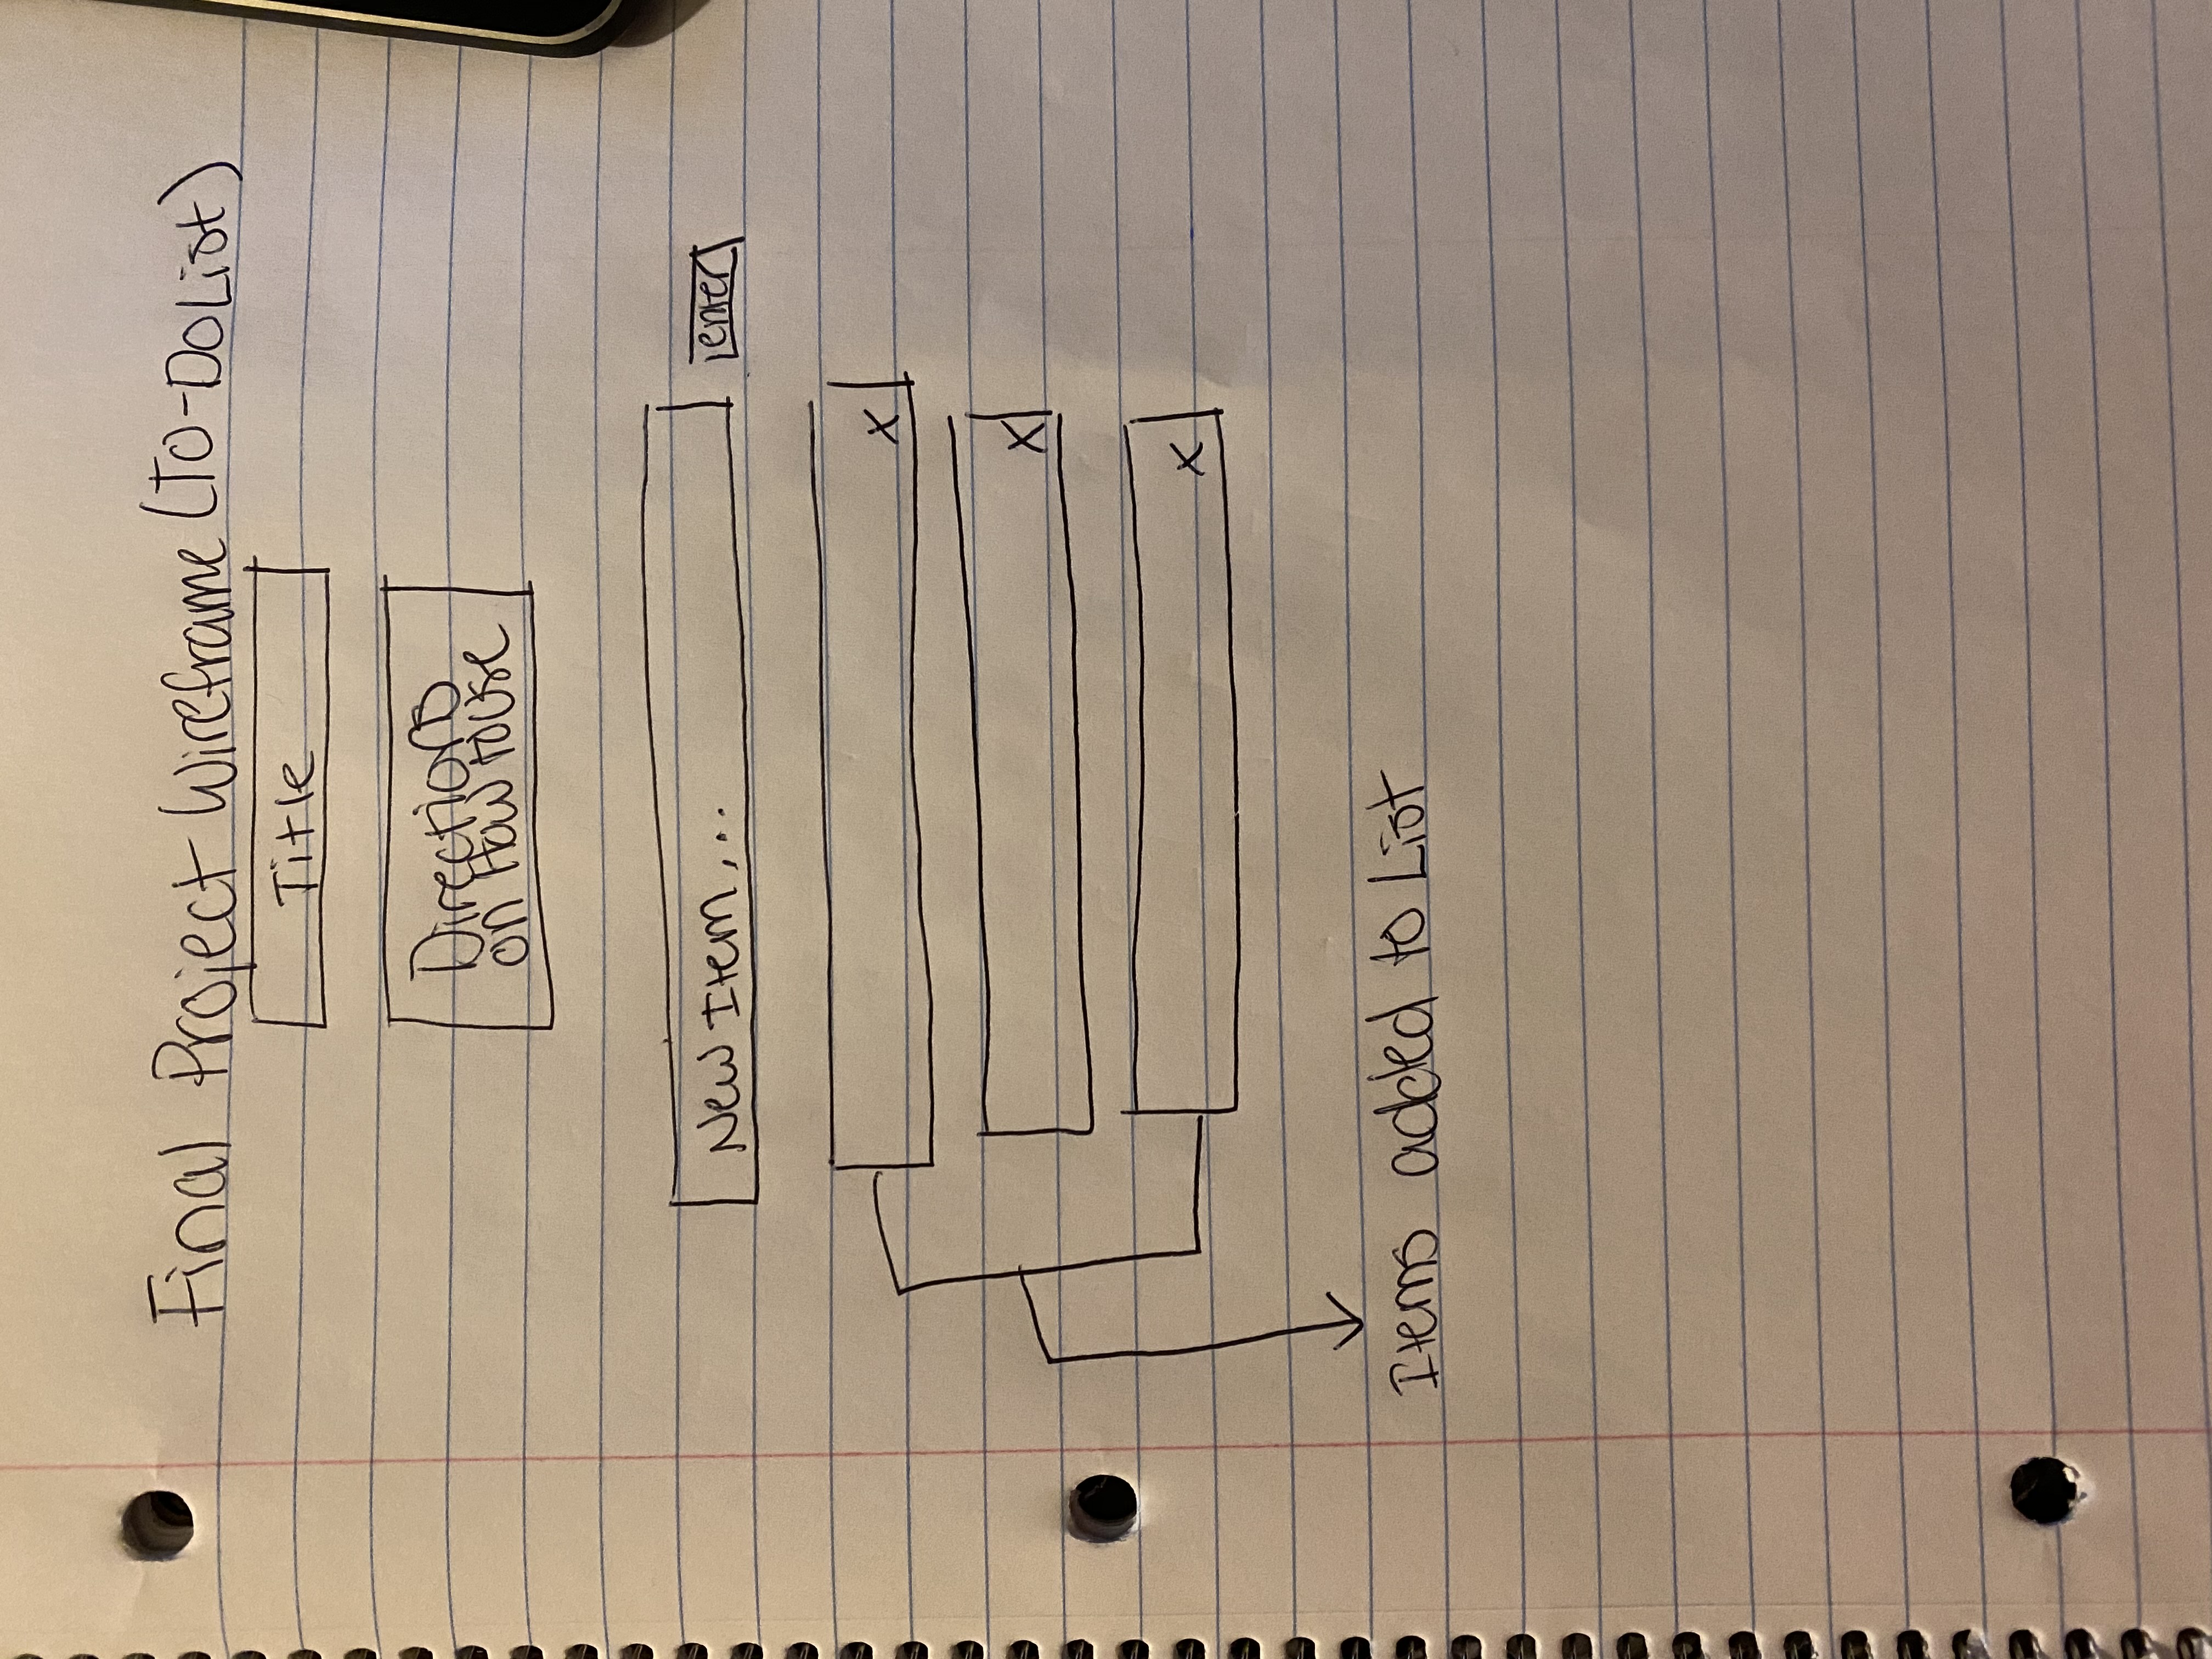 Final Project Wireframe (To-Do List)
Title
Directions
on How to Use
New Item ...
enter
X
X
X
Items added to List